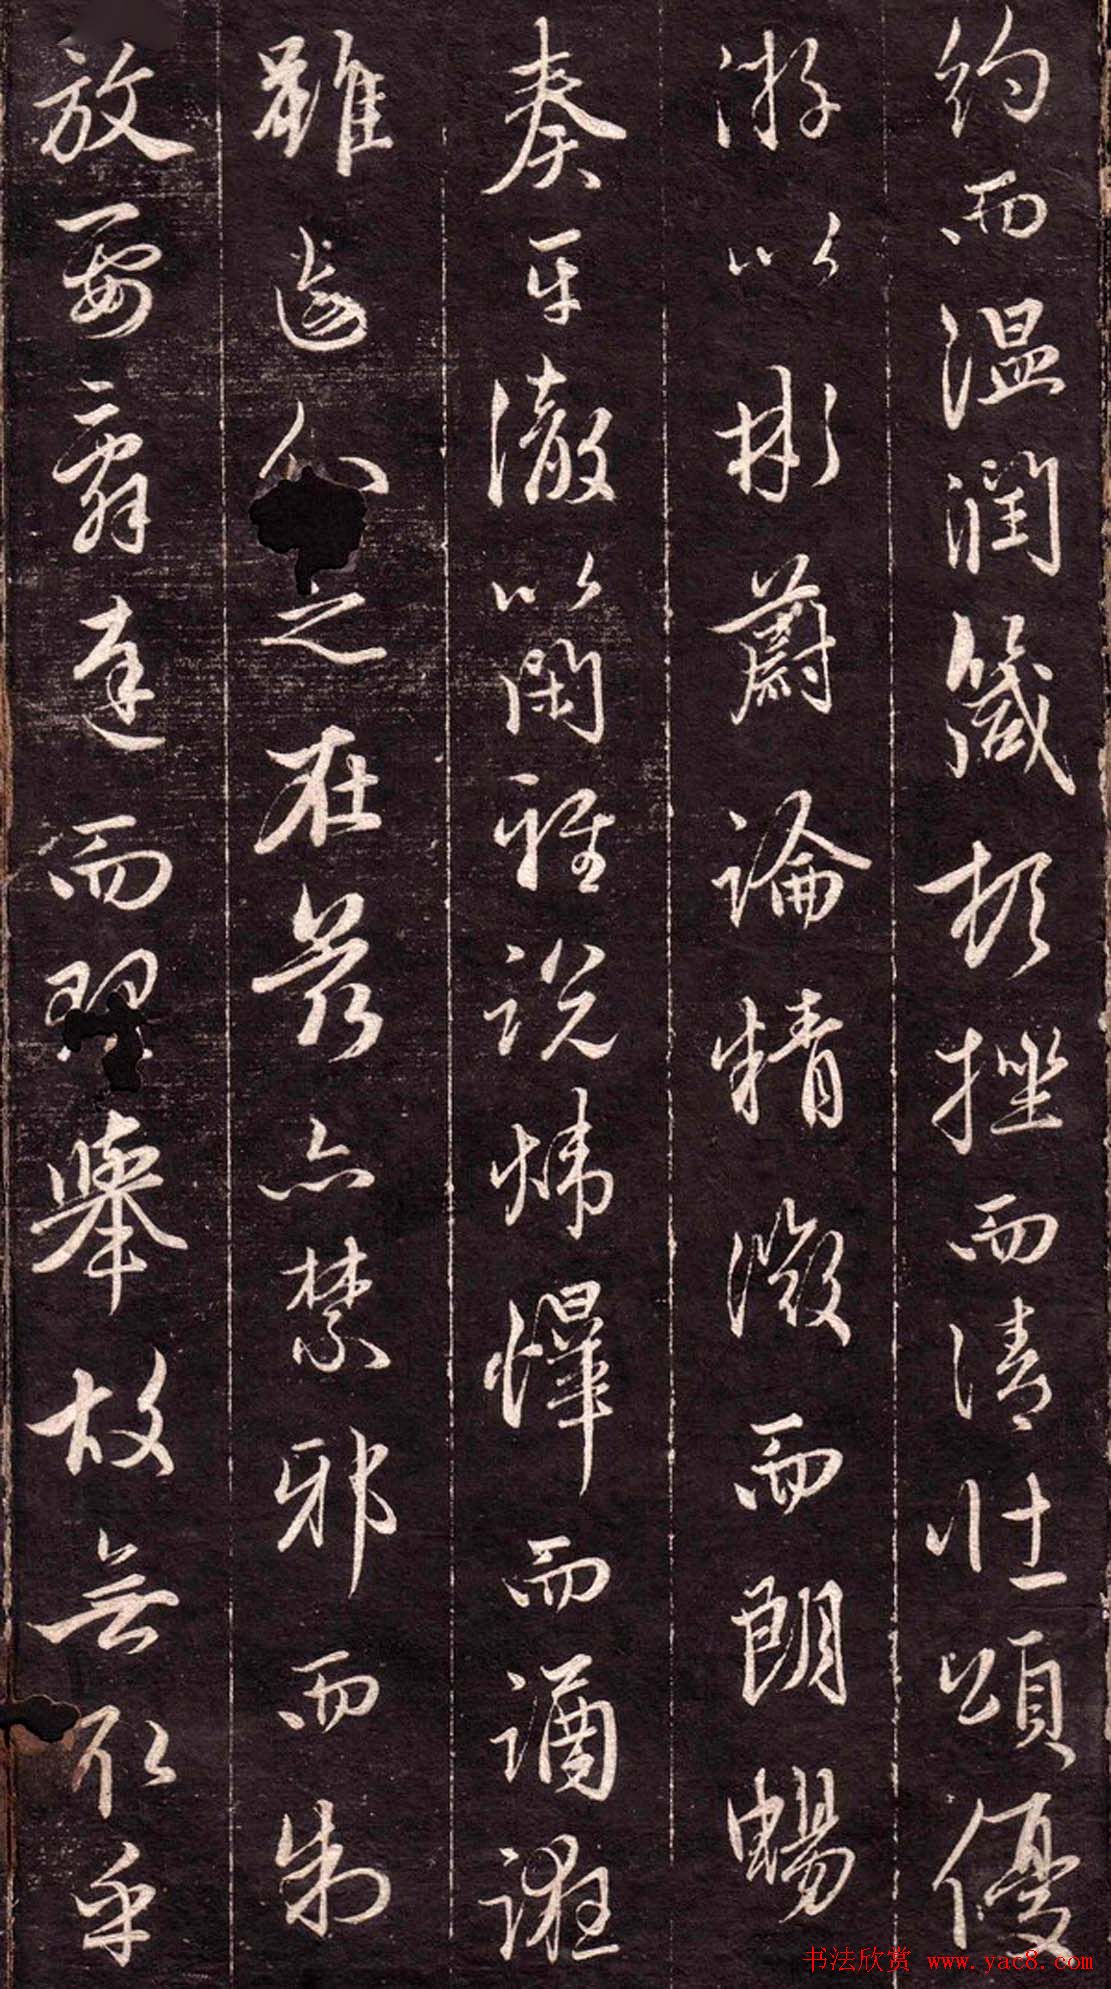 約而溫潤箴頓挫而清壯頌優
游以彬蔚論精微而朗暢
奏平澈以閑雅説煒燁而譎誑
雖區分之在茲亦禁邪而制
放要辭達而理舉故無取乎
书法欣赏 www.yac8.com